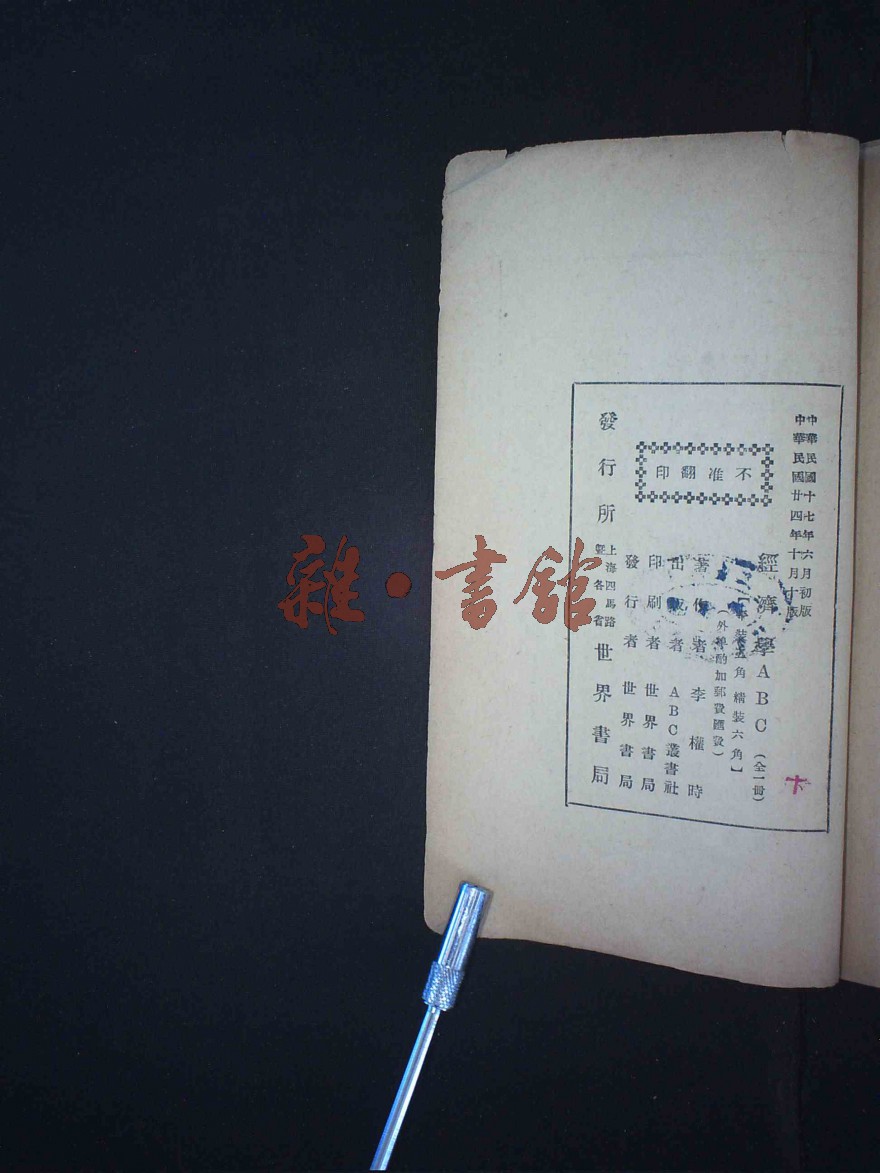 中華民國十七年六月初版
中華民國廿四年十月十版
經濟學ABC（全一冊）
裝五角 精裝六角】
（外埠酌加郵費匯費）
著作者 李權時
出版者 ABC叢書社
印刷者 世界書局
發行者 世界書局
不准翻印
發行所 上海四馬路暨各省 世界書局
雜·書館